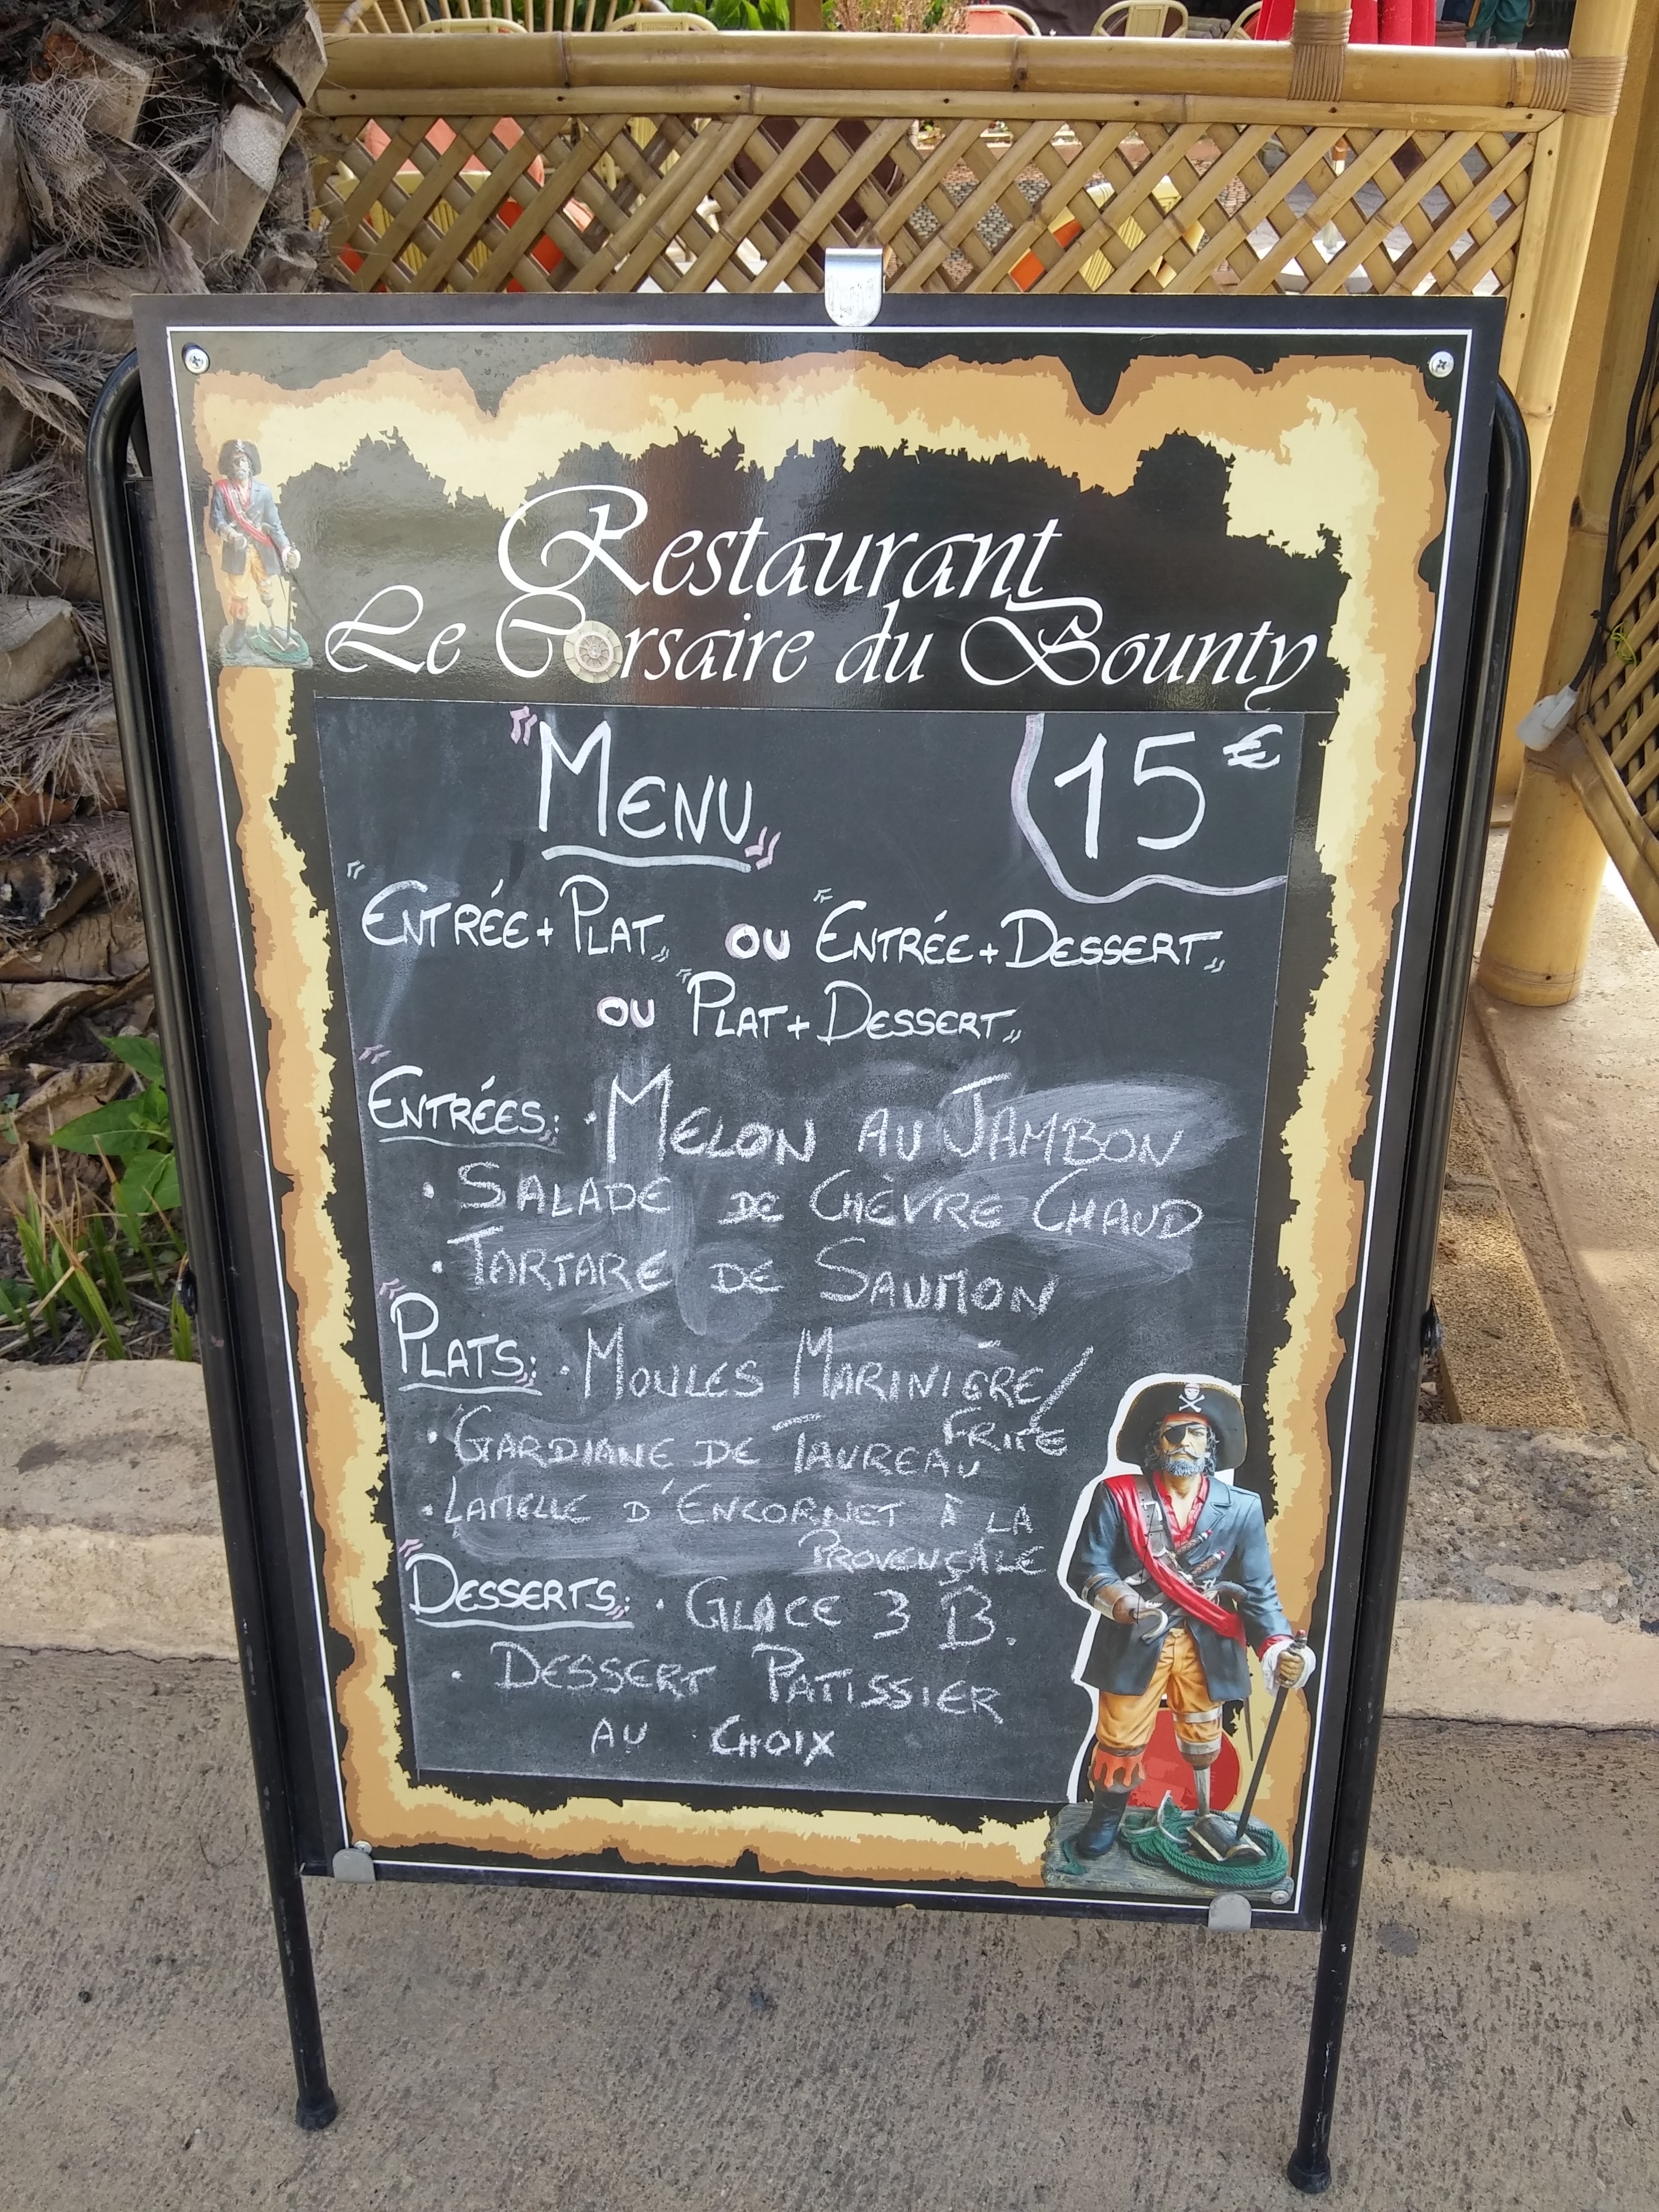 Restaurant
Le Corsaire du Bounty
"MENU" 15€
"ENTRÉE+PLAT" OU "ENTRÉE+DESSERT"
OU "PLAT+DESSERT"
"ENTRÉES": · MELON AU JAMBON
· SALADE DE CHÈVRE CHAUD
· TARTARE DE SAUMON
"PLATS": · MOULES MARINIÈRE/
FRITE
· GARDIANE DE TAUREAU
· LAMELLE D'ENCORNET À LA
PROVENÇALE
"DESSERTS": · GLACE 3 B.
· DESSERT PATISSIER
AU CHOIX